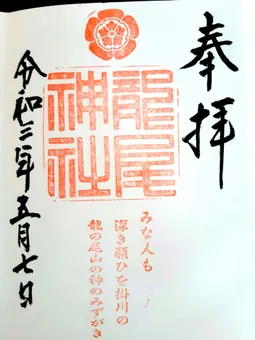 奉拝
龍尾
神社
令和三年五月七日
みな人も
深き願ひを掛川の
龍の尾山の神のみずがき